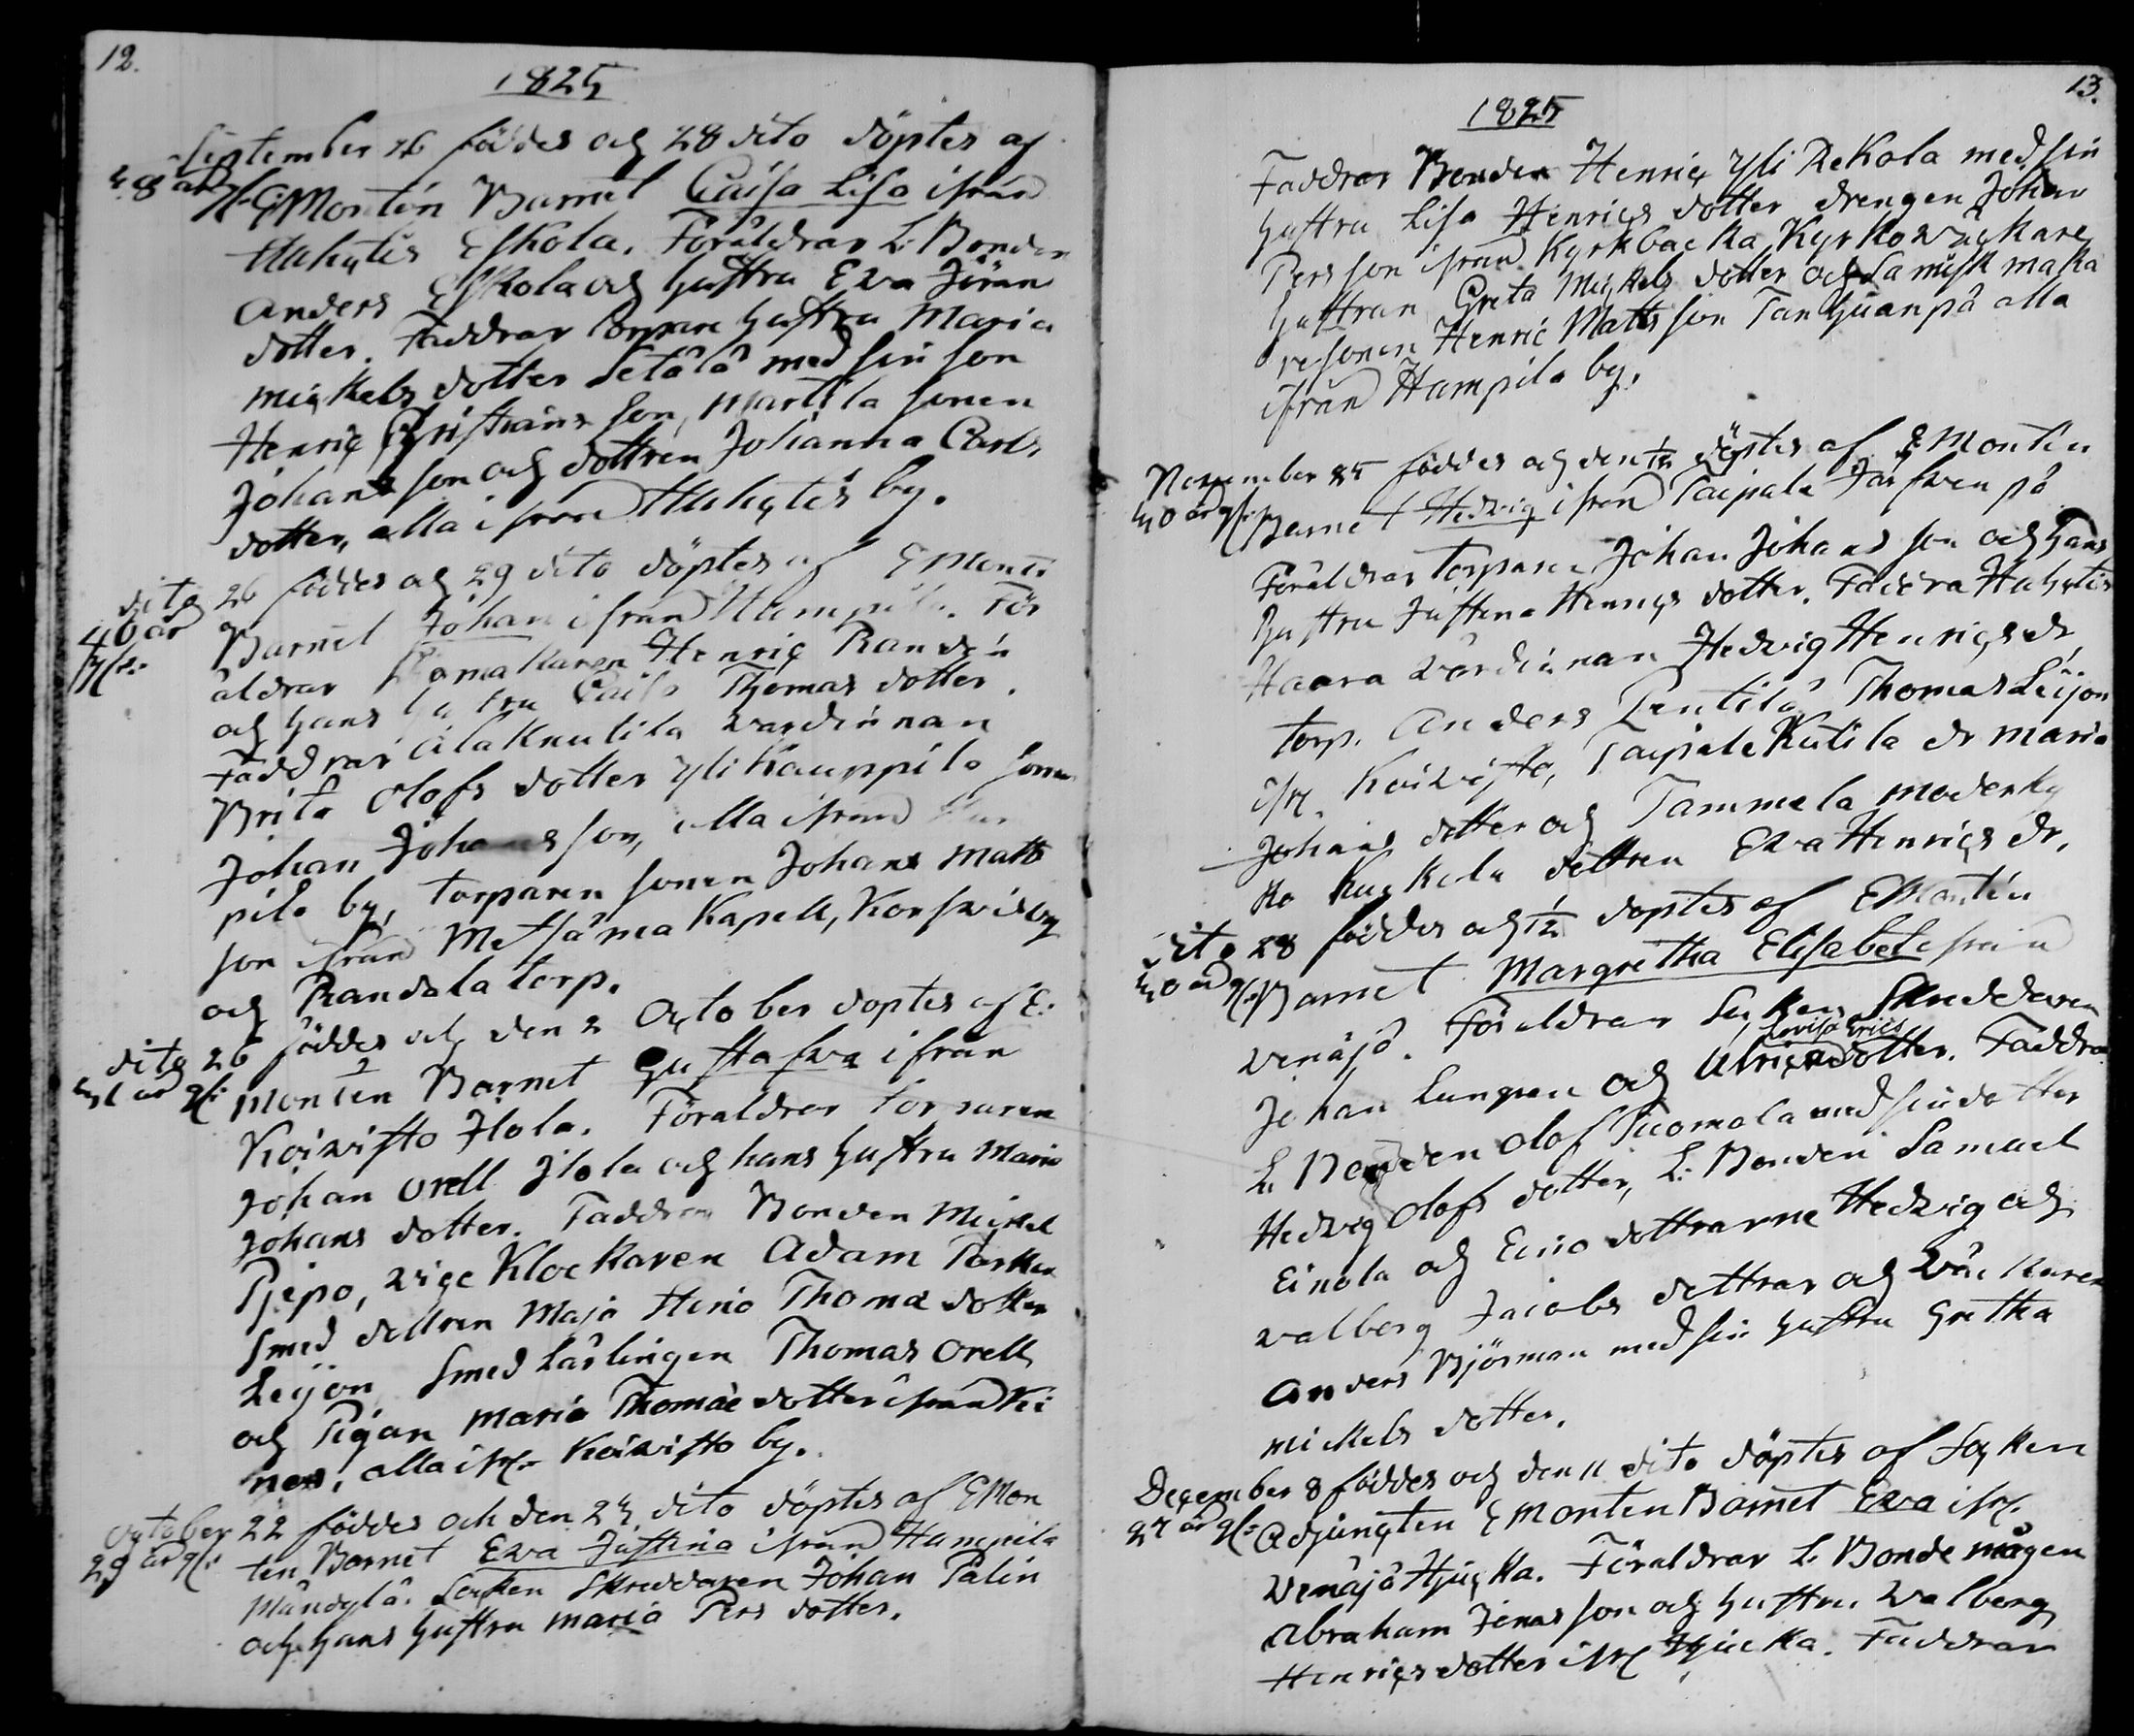 12.
1825
September 26 föddes och 28 dito döptes af
E Monten Barnet Caisa Lisa ifrån
Huhgtis Eskola. Föräldrar L: Bonden
Anders Eskola och hustru Eva Jöran
dotter. Faddrar torpare hustru Maria
Mickels dotter Setälä med sin son
Henric Christians son, Martila sonen
Johans son och dottren Johanna Carls
dotter, alla ifrån Huhgtis by.
dito 26 föddes och 29 dito döptes af E Monten
40 år Barnet Johan ifrån Hampila. För
äldrar Henric Randen
och hans hustru Caisa Thomas dotter.
Faddrar Alaknutila vardinnan
Brita Olofs dotter Yli Kauppila sonen
Johan Johansson, alla ifrån Ham
pila by, torparen sonen Johans Matts
son ifrån Metsämaa Kapell, Korsvidby
och Randala torp.
dito 26 föddes och den 2 October döptes af E:
Monten Barnet Gustafva ifrån
Koivisto Ilola. Föräldrar
Johan Orell Ilola och hans hustru Maria
Johans dotter. Faddrar Bonden Mickel
Pjepo, vice Klockaren Adam
smed dottren Maja Thomæ dotter
Leijon Smed Lärlingen Thomas Orell
och Pigan Maria Thomæ dotter ifrån Kei
nos, alla ifr. Koivisto by.
October 22 föddes och den 24 dito döptes af E Mon
29 år ten Barnet Eva Justina ifrån Hampila
Mändylä. Socken Skreddaren Johan Palin
och hans hustru Maria Pers dotter.
13.
1825
Faddrar Bonden Henric Yli Rekola med sin
hustru Lisa Henrics dotter drengen Johan
Persson ifrån Kyrkbacka Kyrkoväckare
hustrun Greta Mickels dotter och
sonen Henric Mattsson Tanhuanpä alla
ifrån Hampila by.
November föddes och den döptes af E Monten
40 år Barnet Hedvig ifrån Taipale
Föräldrar torparen Johan Johans son och hans
hustru Justina Henrics dotter. Faddrar Huhgtis
Haara värdinnan Hedvig Henrics dr
torp. Anders Pentilä, Thomas Leijon
ifr. Koivisto, Taipale Kutila dr Maria
Johans dotter och Tammela moderky
rko dottren Eva Henrics dr.
dito 28 föddes och 1/12 döptes af E Monten
40 år Barnet Margretha Elisabet ifrån
Venäjä. Föräldrar Socken Skreddaren
Lovisa Erics
Johan Lungren och Ulrica dotter. Faddrar
L. Bonden Olof Tuomola med sin dotter
Hedvig Olofs dotter, L: Bonden Samuel
Einola och Eino dottrarne Hedvig och
Valborg Jacobs dottrar och Väckaren
Anders Björman med sin hustru Gretha
Mickels dotter.
December 8 föddes och den 11 dito döptes af Socken
27 år Adjuncten E Monten Barnet Eva ifr.
Venäjä Hjucka. Föräldrar L. Bonde mågen
Abraham Jonas son och hustru Valborg
Henrics dotter ifr. Hjucka. Faddrar